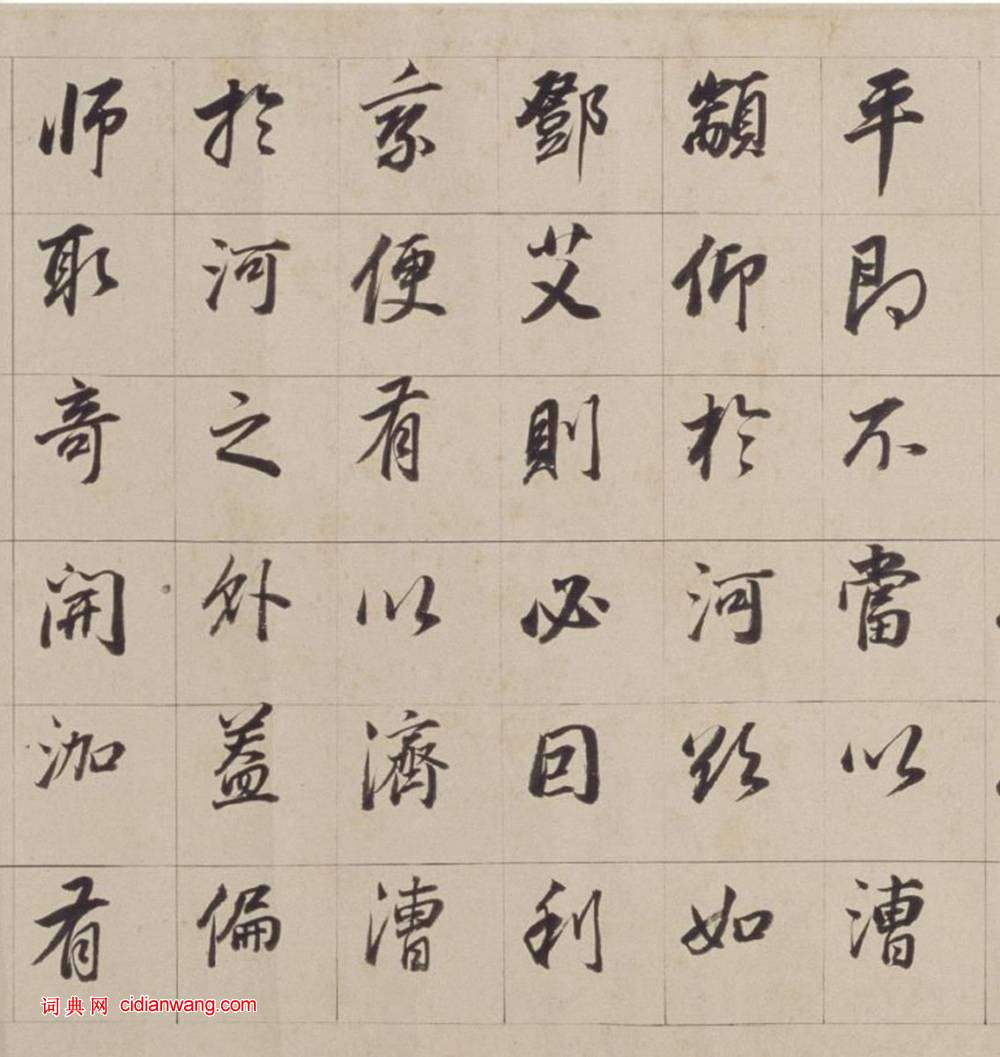 平即不當以漕
顓仰於河欲如
鄧艾則必因利
乘便有以濟漕
於河之外蓋偏
師取奇開泇有
词典网 cidianwang.com